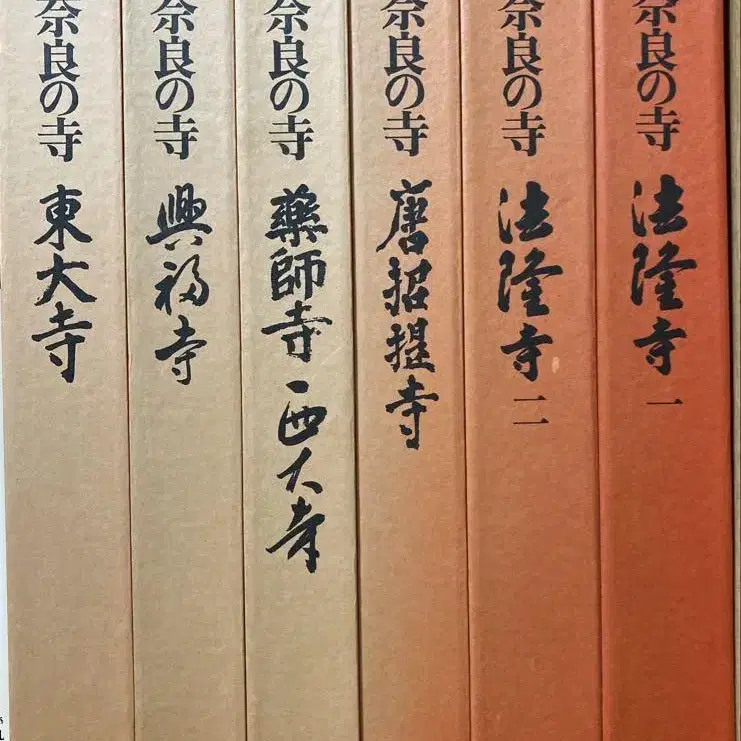 奈良の寺 法隆寺 一
奈良の寺 法隆寺 二
奈良の寺 唐招提寺
奈良の寺 藥師寺 西大寺
奈良の寺 興福寺
奈良の寺 東大寺